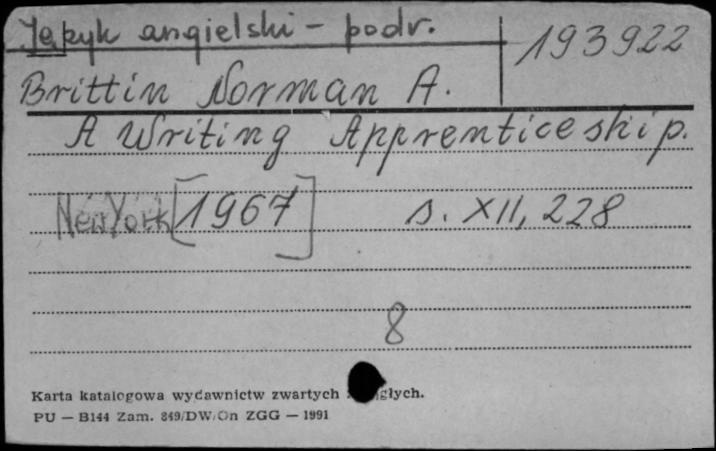 Język angielski - podr.
193922
Brittin Norman A.
A Writing Apprenticeship.
New York [1967] s. XII, 228
8
Karta katalogowa wydawnictw zwartych
PU — B144 Zam. 849/DW/On ZGG — 1991